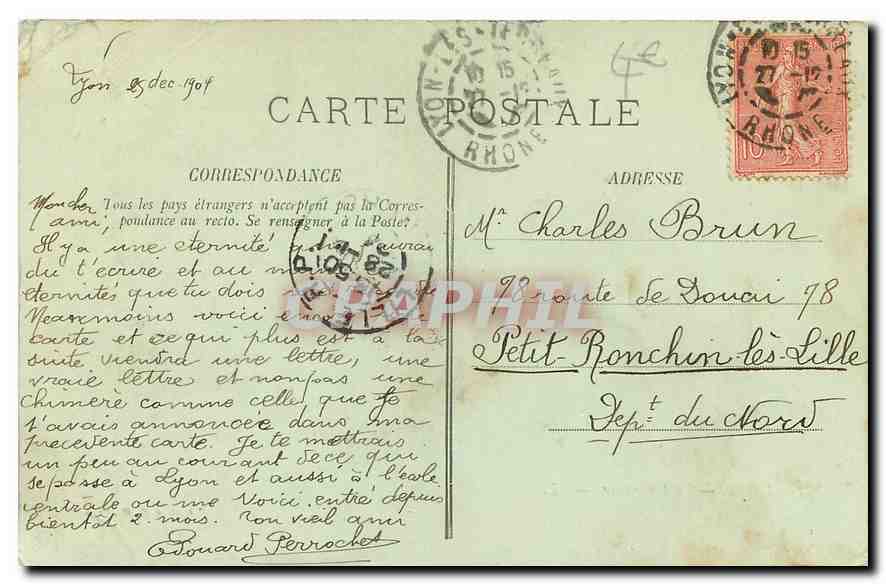 Lyon 25 dec. 1904
4e
CARTE POSTALE
LYON-LES-TERREAUX
10 15
27 -12
RHONE
LYON-LES-TERREAUX
10 15
27 -12
RHONE
10
CORRESPONDANCE
Tous les pays étrangers n'acceptent pas la Corres-
pondance au recto. Se renseigner à la Poste.
Mon cher
ami,
Il y a une eternité que j'aurai
du t'écrire et au
eternités que tu dois
Neanmoins voici
carte et ce qui plus est à la
suite viendra une lettre, une
vraie lettre et non pas une
chimère comme celle que je
t'avais annoncée dans ma
precedente carte. Je te mettrais
un peu au courant de ce qui
se passe à Lyon et aussi à l'école
centrale ou me voici entré depuis
bientôt 2 mois. Ton vieil ami
Edouard Perrochet
ADRESSE
Mr Charles Brun
98 route de Douai 78
Petit-Ronchin-lès-Lille
Dept du Nord
CRAPHIL